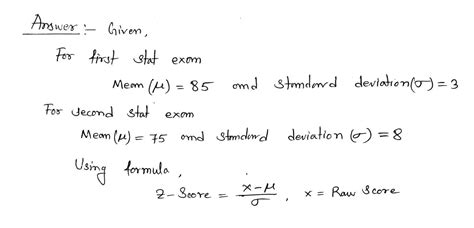 Answer :- Given,
For first stat exam
Mean (μ) = 85 and standard deviation (σ) = 3
For second stat exam
Mean (μ) = 75 and standard deviation (σ) = 8
Using formula,
Z-Score = (x-μ)/σ , x = Raw Score